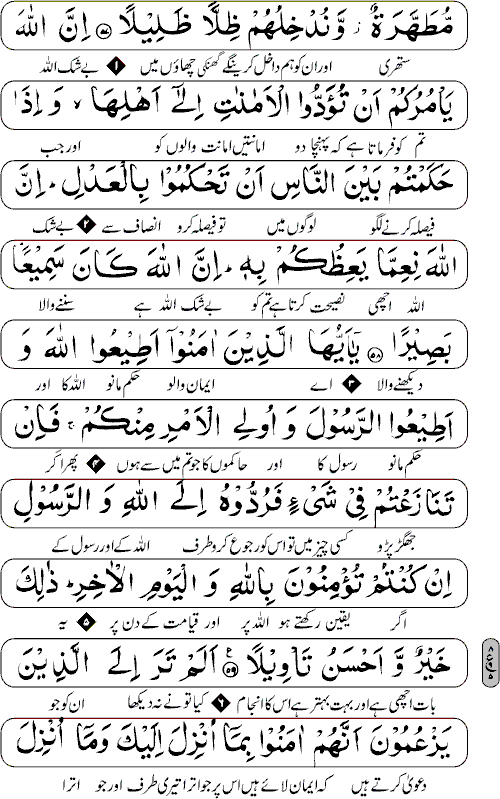 مُّطَهَّرَةٌ ز وَّنُدْخِلُهُمْ ظِلًّا ظَلِيْلًا ﴿۵۷﴾ اِنَّ اللّٰهَ
ستھری اور ان کو ہم داخل کرینگے گھنی چھاؤں میں ۱ بے شک اللہ
يَاْمُرُكُمْ اَنْ تُؤَدُّوا الْاَمٰنٰتِ اِلٰٓى اَهْلِهَا ۙ وَ اِذَا
تم کو فرماتا ہے کہ پہنچا دو امانتیں امانت والوں کو اور جب
حَكَمْتُمْ بَيْنَ النَّاسِ اَنْ تَحْكُمُوْا بِالْعَدْلِ ؕ اِنَّ
فیصلہ کرنے لگو لوگوں میں تو فیصلہ کرو انصاف سے ۲ بے شک
اللّٰهَ نِعِمَّا يَعِظُكُمْ بِهٖ ؕ اِنَّ اللّٰهَ كَانَ سَمِيْعًۢا
اللہ اچھی نصیحت کرتا ہے تم کو بے شک اللہ ہے سننے والا
بَصِيْرًا ﴿۵۸﴾ يٰۤاَيُّهَا الَّذِيْنَ اٰمَنُوْۤا اَطِيْعُوا اللّٰهَ وَ
دیکھنے والا ۳ اے ایمان والو حکم مانو اللہ کا اور
اَطِيْعُوا الرَّسُوْلَ وَ اُولِى الْاَمْرِ مِنْكُمْ ۚ فَاِنْ
حکم مانو رسول کا اور حاکموں کا جو تم میں سے ہوں ۴ پھر اگر
تَنَازَعْتُمْ فِيْ شَيْءٍ فَرُدُّوْهُ اِلَى اللّٰهِ وَ الرَّسُوْلِ
جھگڑ پڑو کسی چیز میں تو اس کو رجوع کرو طرف اللہ کے اور رسول کے
اِنْ كُنْتُمْ تُؤْمِنُوْنَ بِاللّٰهِ وَ الْيَوْمِ الْاٰخِرِ ؕ ذٰلِكَ
اگر یقین رکھتے ہو اللہ پر اور قیامت کے دن پر ۵ یہ
خَيْرٌ وَّ اَحْسَنُ تَاْوِيْلًا ﴿۵۹﴾ اَلَمْ تَرَ اِلَى الَّذِيْنَ
بات اچھی ہے اور بہت بہتر ہے اس کا انجام ۶ کیا تو نے نہ دیکھا ان کو جو
يَزْعُمُوْنَ اَنَّهُمْ اٰمَنُوْا بِمَاۤ اُنْزِلَ اِلَيْكَ وَمَاۤ اُنْزِلَ
دعویٰ کرتے ہیں کہ ایمان لائے ہیں اس پر جو اترا تیری طرف اور جو اترا